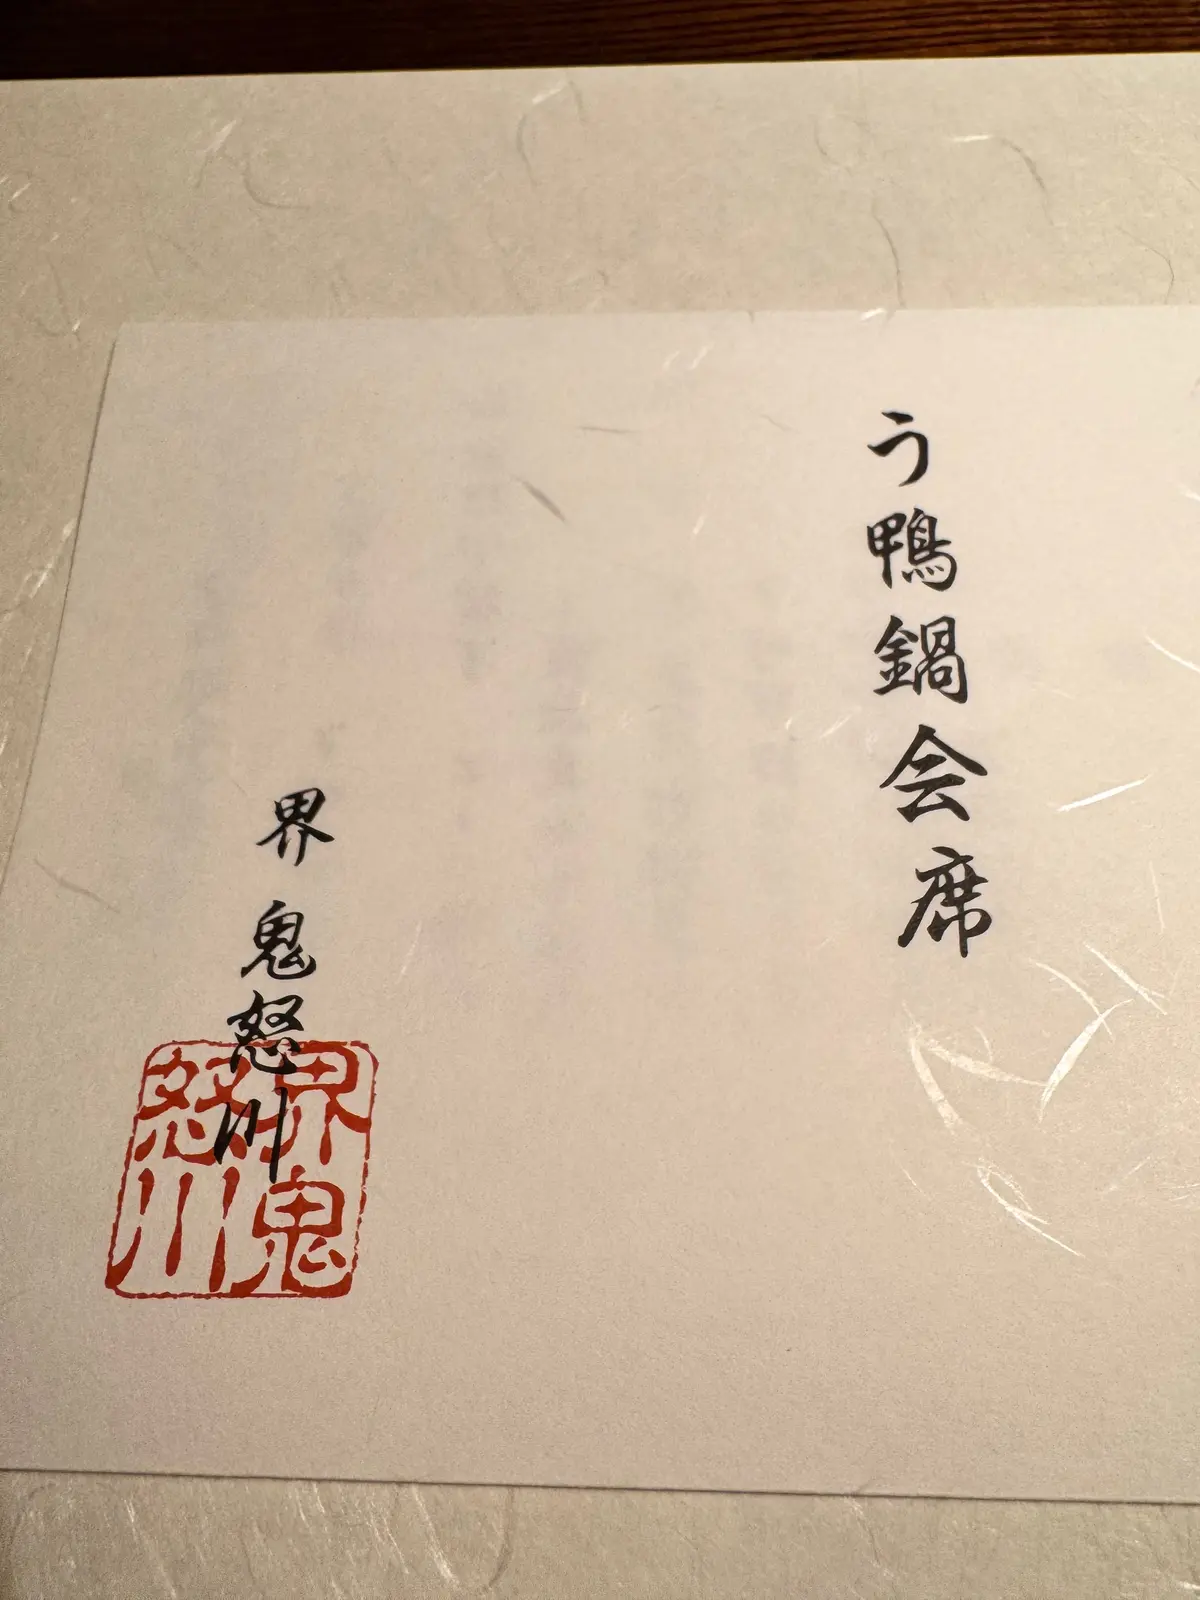 う鴨鍋会席
界 鬼怒川
界鬼
怒川